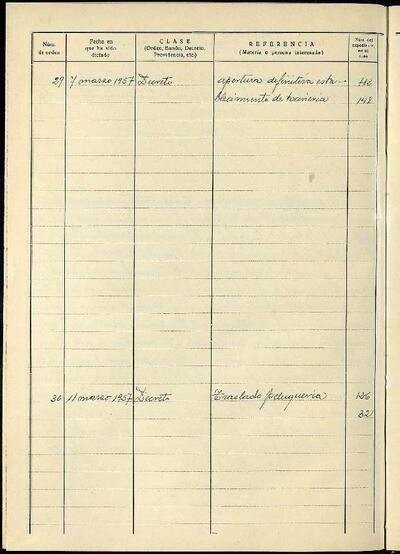 Núm. de orden
Fecha en que ha sido dictado
CLASE
(Orden, Bando, Decreto, Providencia, etc.)
REFERENCIA
(Materia o persona interesada)
Núm. del
29 7 marzo 1957 Decreto apertura definitiva esta-
blecimiento de tocinería 142
30 11 marzo 1957 Decreto Traslado peluquería 136
32